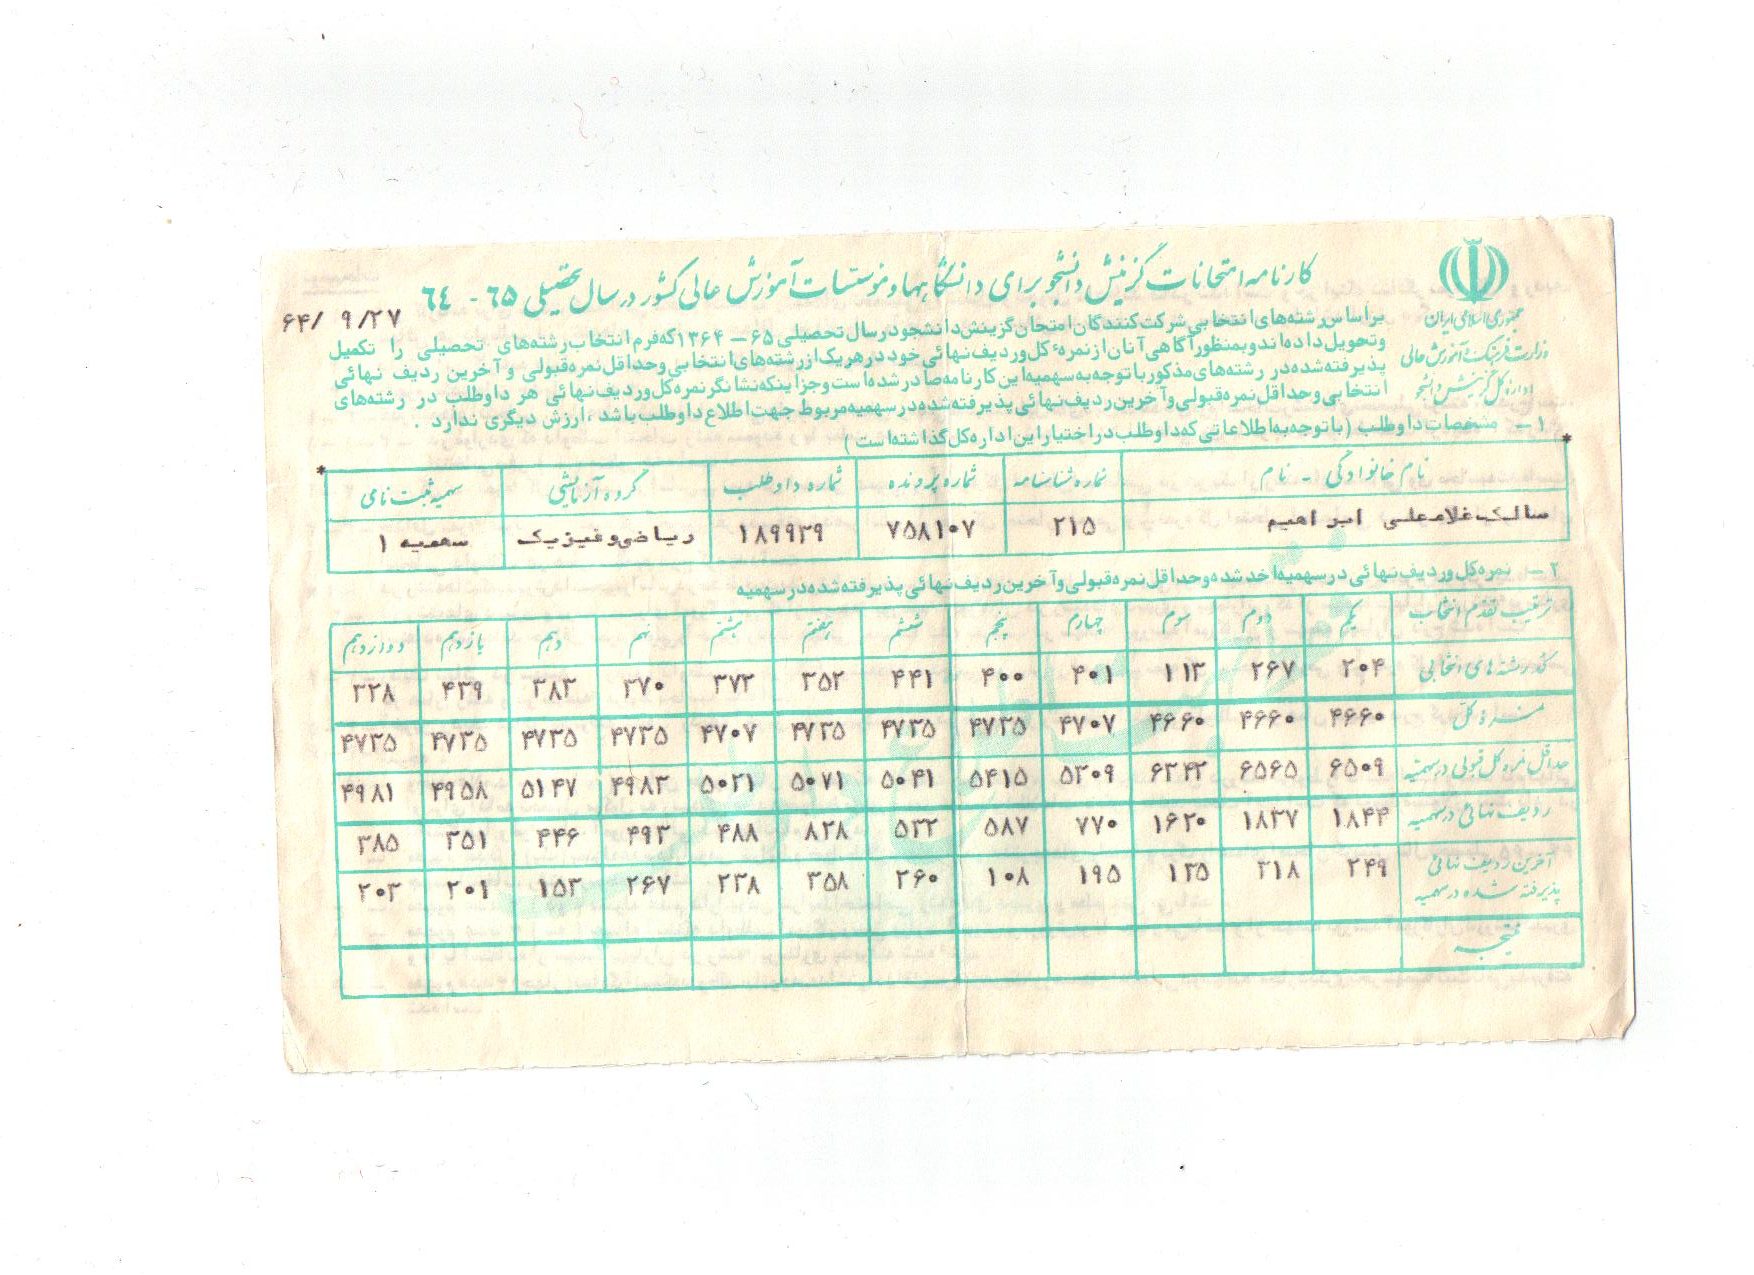 کارنامه امتحانات گزینش دانشجو برای دانشگاهها و مؤسسات آموزش عالی کشور در سال تحصیلی ۶۵ - ۶۴
جمهوری اسلامی ایران
وزارت فرهنگ و آموزش عالی
اداره کل گزینش دانشجو
۶۴/ ۹/۲۷
براساس رشته‌های انتخابی شرکت کنندگان امتحان گزینش دانشجو در سال تحصیلی ۶۵ – ۱۳۶۴ که فرم انتخاب رشته‌های تحصیلی را تکمیل
و تحویل داده‌اند و بمنظور آگاهی آنان از نمره کل و ردیف نهائی خود در هر یک از رشته‌های انتخابی و حداقل نمره قبولی و آخرین ردیف نهائی
پذیرفته شده در رشته‌های مذکور با توجه به سهمیه این کارنامه صادر شده است و جز اینکه نشانگر نمره کل و ردیف نهائی هر داوطلب در رشته‌های
انتخابی و حداقل نمره قبولی و آخرین ردیف نهائی پذیرفته شده در سهمیه مربوط جهت اطلاع داوطلب باشد ، ارزش دیگری ندارد .
۱ – مشخصات داوطلب ( با توجه به اطلاعاتی که داوطلب در اختیار این اداره کل گذاشته است )
نام خانوادگی - نام شماره شناسنامه شماره پرونده شماره داوطلب گروه آزمایشی سهمیه ثبت نامی
سالک غلامعلی ابراهیم ۲۱۵ ۷۵۸۱۰۷ ۱۸۹۹۳۹ ریاضی و فیزیک سهمیه ۱
۲ – نمره کل و ردیف نهائی در سهمیه اخذ شده و حداقل نمره قبولی و آخرین ردیف نهائی پذیرفته شده در سهمیه
ترتیب تقدم انتخاب یکم دوم سوم چهارم پنجم ششم هفتم هشتم نهم دهم یازدهم دوازدهم
کد رشته های انتخابی ۲۰۴ ۲۶۷ ۱۱۳ ۴۰۱ ۴۰۰ ۴۴۱ ۳۵۲ ۳۷۲ ۳۷۰ ۳۸۳ ۴۳۹ ۳۲۸
نمره کل ۴۶۶۰ ۴۶۶۰ ۴۶۶۰ ۴۷۰۷ ۴۷۳۵ ۴۷۳۵ ۴۷۳۵ ۴۷۰۷ ۴۷۳۵ ۴۷۳۵ ۴۷۳۵ ۴۷۳۵
حداقل نمره کل قبولی در سهمیه ۶۵۰۹ ۶۵۶۵ ۶۳۴۳ ۵۳۰۹ ۵۴۱۵ ۵۰۴۱ ۵۰۷۱ ۵۰۲۱ ۴۹۸۳ ۵۱۴۷ ۴۹۵۸ ۴۹۸۱
ردیف نهائی در سهمیه ۱۸۴۴ ۱۸۳۷ ۱۶۲۰ ۷۷۰ ۵۸۷ ۵۳۲ ۸۲۸ ۴۸۸ ۴۹۳ ۴۴۶ ۳۵۱ ۳۸۵
آخرین ردیف نهائی ۲۴۹ ۲۱۸ ۱۳۵ ۱۹۵ ۱۰۸ ۲۶۰ ۳۵۸ ۲۳۸ ۲۶۷ ۱۵۳ ۲۰۱ ۲۰۳
پذیرفته شده در سهمیه
نتیجه